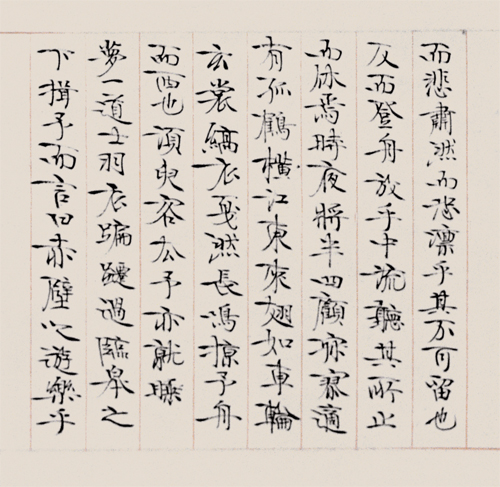 而悲肅然而恐凜乎其不可留也
反而登舟放乎中流聽其所止
而休焉時夜將半四顧寂寥適
有孤鶴橫江東來翅如車輪
玄裳縞衣戛然長鳴掠予舟
而西也須臾客去予亦就睡
夢一道士羽衣蹁躚過臨皋之
下揖予而言曰赤壁之遊樂乎